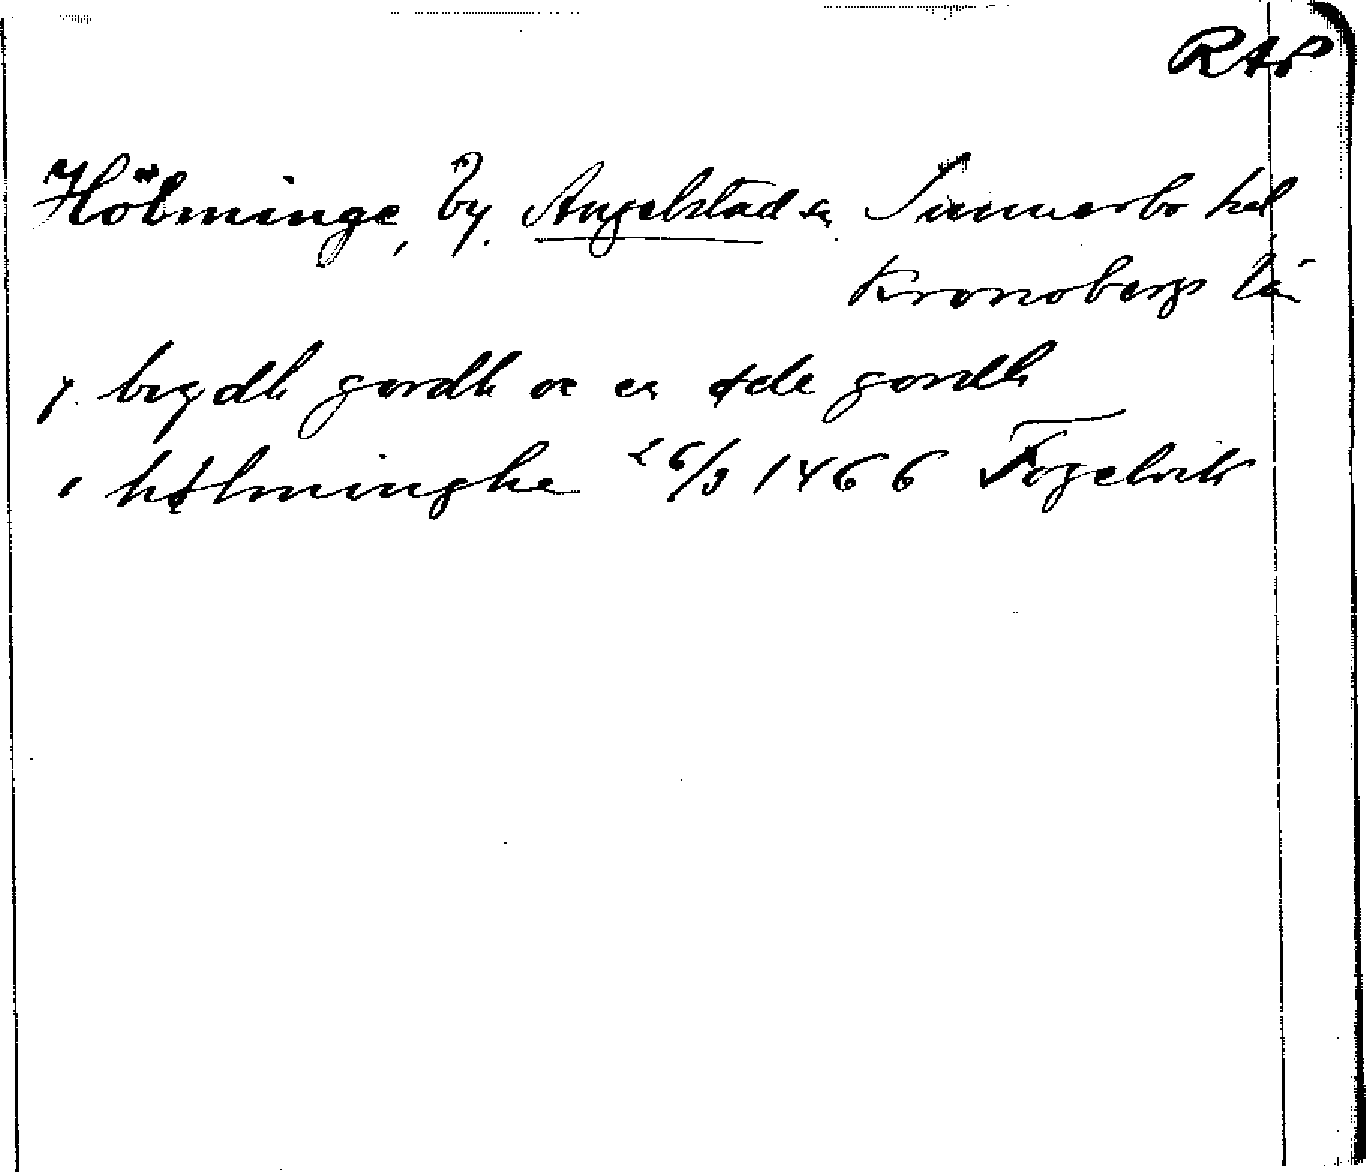 RAP
Hölminge, by. Angelstad sn. Sunnerbo hd
Kronobergs län
j bygdh gordh oc en øde gordh
i hølminghe 26/9 1466 Fogelvik